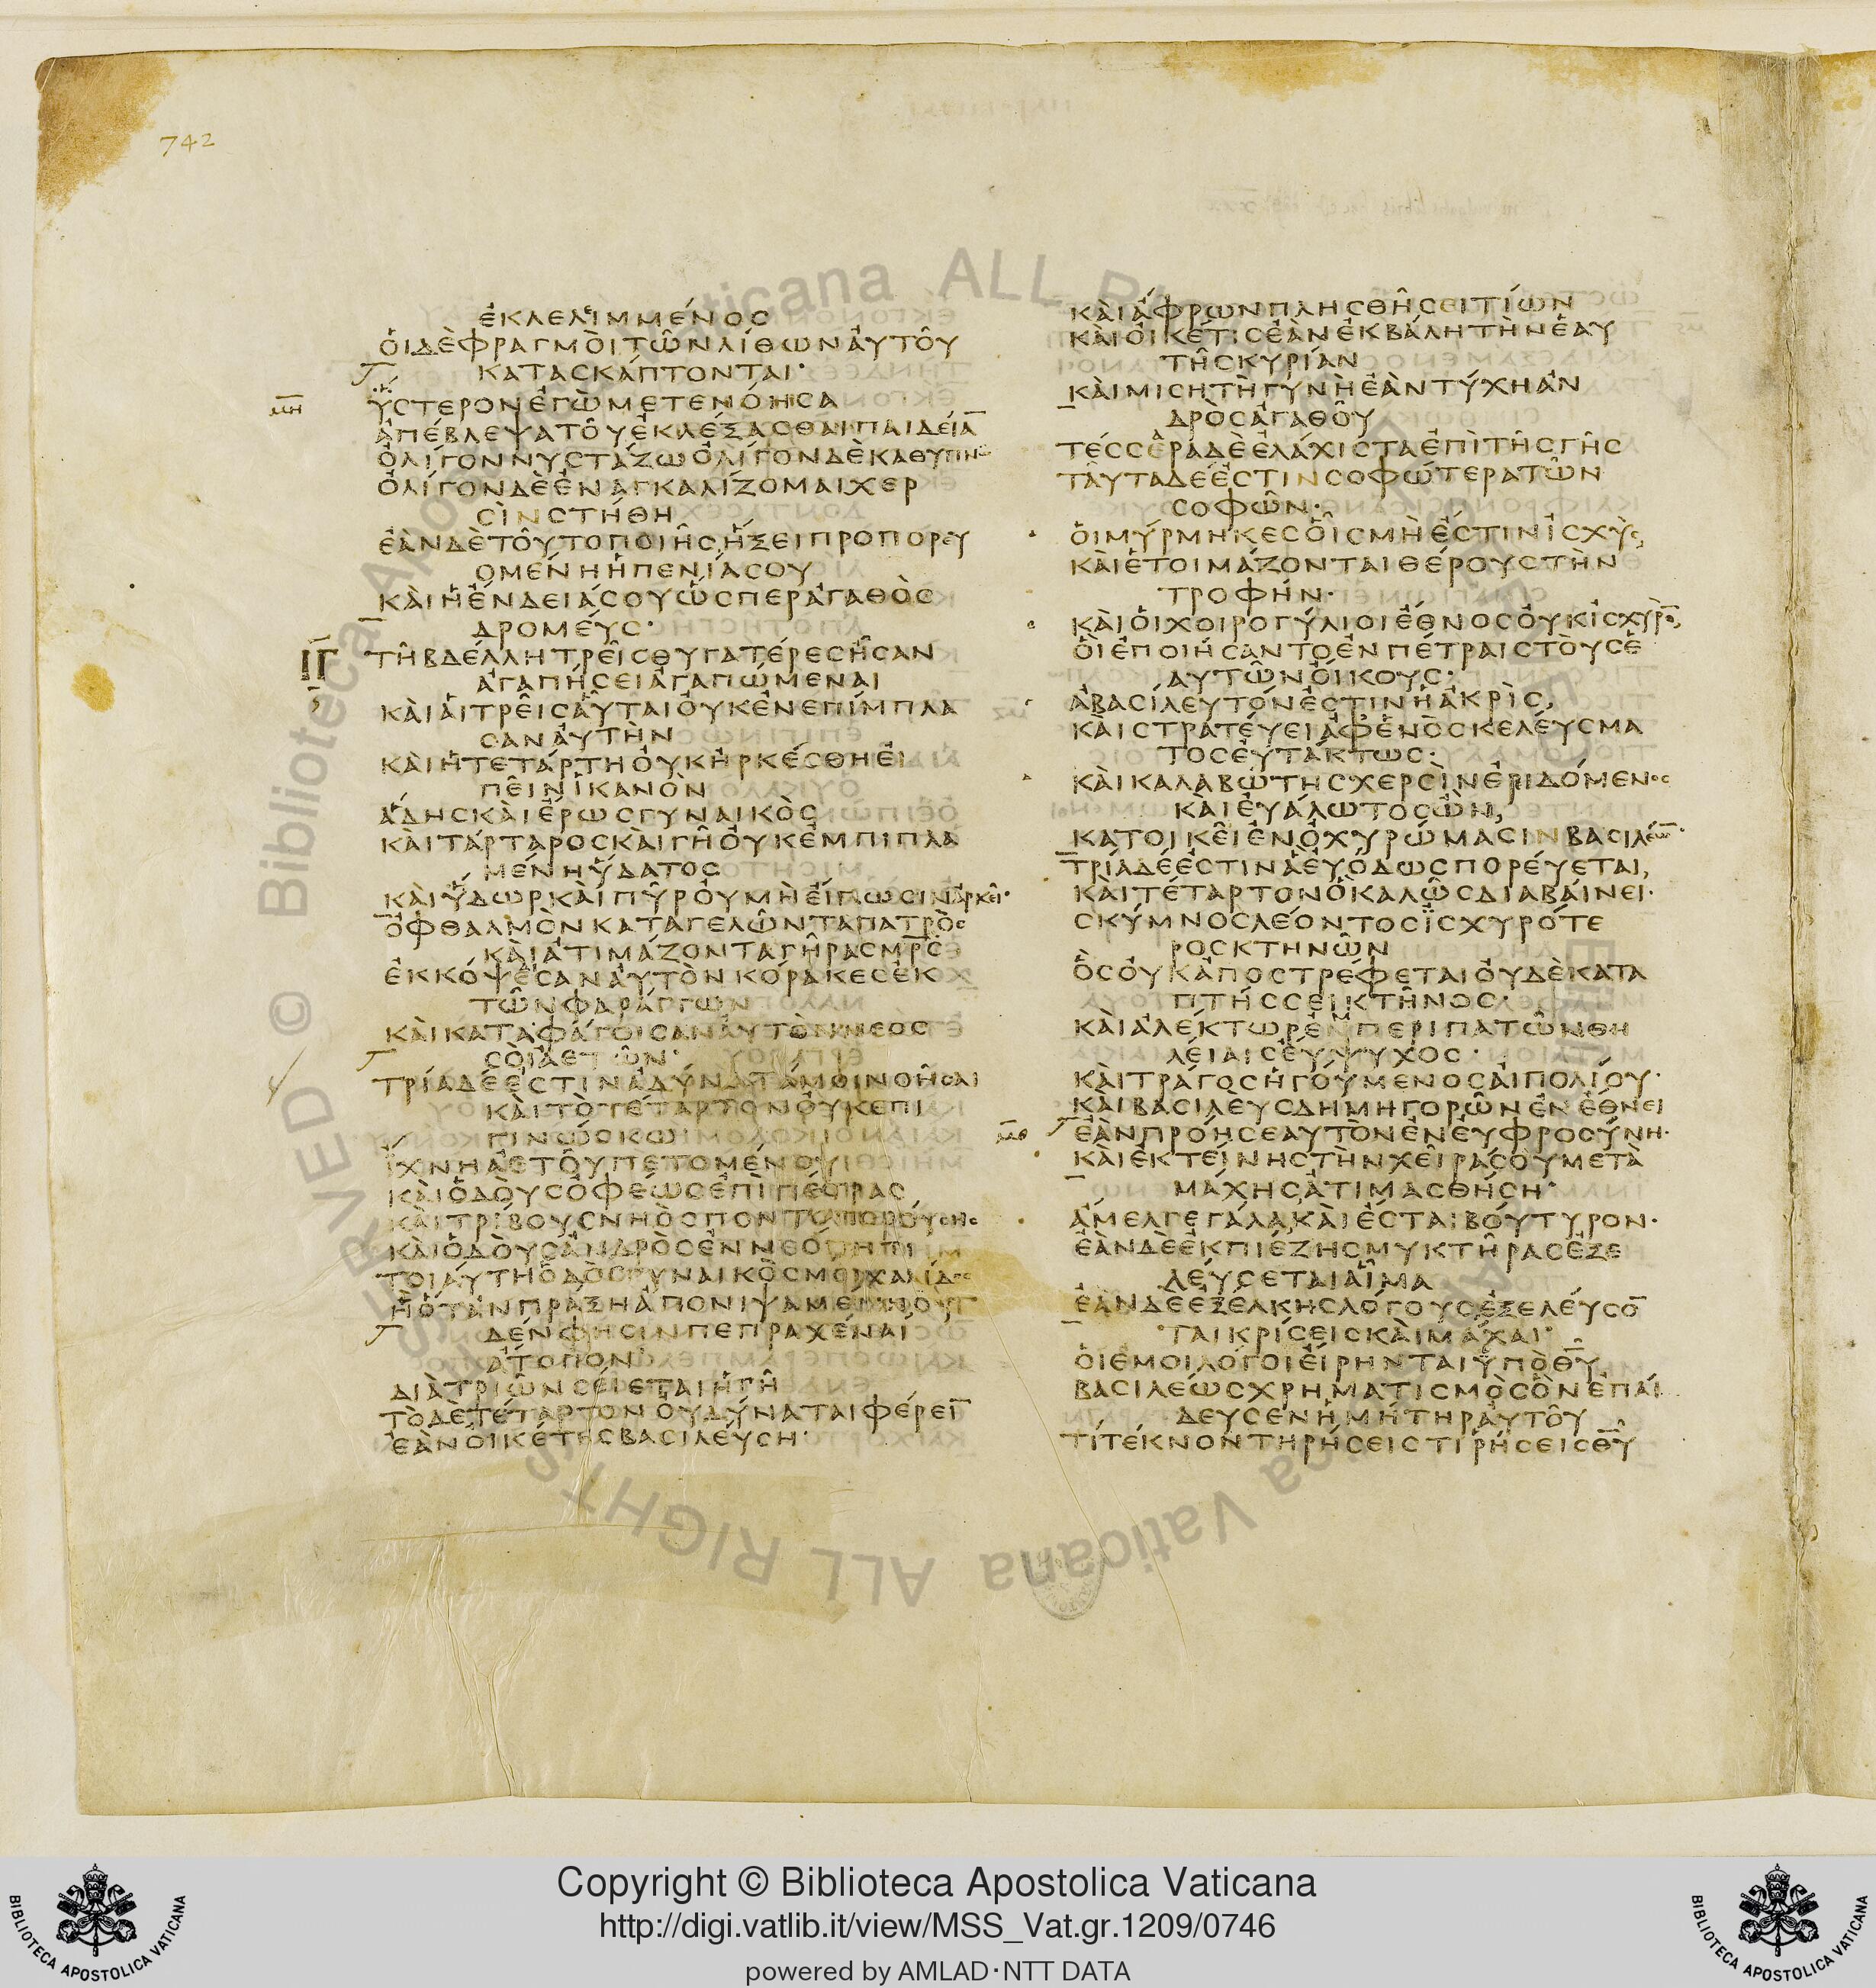 742
ἐκλελειμμένος
ὁιδὲφραγμὸιτῶνλίθωναὐτοῦ
κατασκάπτονται·
μη
ὕστερονἐγὼμετενόησα
ἀπέβλεψατοῦἐκλέξασθαιπαιδείᾱ
ὀλίγοννυστάζωὀλίγονδὲκαθυπνῶ
ὀλίγονδὲἐναγκαλίζομαιχερ
σὶνστήθη
ἐὰνδὲτοῦτοποιῇςἥξειπροπορευ
ομένηἡπενίασου
κὰιἡἔνδειάσουὥσπερἀγαθὸς
δρομέυς·
ΙΓ
τῇβδέλλητρεῖςθυγατέρεςἦσαν
ἀγαπήσειἀγαπώμεναι
κὰιἁιτρεῖςαὗταιὀυκἐνεπίμπλα
σαναὐτὴν
κὰιἡτετάρτηὀυκἠρκέσθηἐι
πεῖνἱκανόν
ἅδηςκὰιἔρωςγυναικὸς
κὰιτάρταροςκὰιγῆὀυκἐμπιπλα
μένηὕδατος
κὰιὕδωρκὰιπῦρὀυμὴἔιπωσιναρκεῖ·
ὀφθαλμὸνκαταγελῶνταπατρὸς
κὰιἀτιμάζονταγῆραςμρ̅ς
ἐκκόψαισαναὐτὸνκόρακεςἐκ
τῶνφαράγγων
κὰικαταφάγοισαναὐτὸννεοσ
σὸιἀετῶν·
τρίαδέἐστινἀδύνατάμοινοῆσαι
κὰιτὸτέταρτονὀυκἐπι
γινώσκω
ἴχνηἀετοῦπετομένου
κὰιὁδὸυςὄφεωςἐπὶπέτρας
κὰιτρίβουςνηὸςποντοπορούσης
κὰιὁδὸυςἀνδρὸςἐννεότητι
τοιάυτηὁδὸςγυναικὸςμοιχαλίδος
ἣὅτανπράξηἀπονιψαμένηὀυ
δένφησινπεπραχέναι
ἄτοπον·
διὰτριῶνσέιεταιἡγῆ
τὸδὲτέταρτονὀυδύναταιφέρει̅
ἐὰνὀικέτηςβασιλέυση·
κὰιἄφρωνπλησθῇσειτίων
κὰιὀικέτιςἐὰνἐκβάλητὴνἑαυ
τῆςκυρίαν
κὰιμισητὴγυνὴἐὰντύχηἀν
δρὸςἀγαθοῦ
τέσσεραδὲἐλάχισταἐπὶτῆςγῆς
ταῦταδέἐστινσοφώτερατῶν
σοφῶν·
ὁιμύρμηκεςὁῖςμὴἔστινἰσχὺς
κὰιἑτοιμάζονταιθέρουςτὴν
τροφήν·
κὰιὁιχοιρογύλιοιἔθνοςὀυκἰσχυρὸ̅,
ὃιἐποιήσαντοἐνπέτραιςτὸυςἑ
αυτῶνὄικους·
ἀβασίλευτόνἐστινἡἀκρὶς,
κὰιστρατέυειἀφἑνὸςκελέυσμα
τοςἐυτάκτως·
κὰικαλαβώτηςχερσὶνἐριδόμενος
κὰιἐυάλωτοςὢν,
κατοικεῖἐνὀχυρώμασινβασιλέω̅·
τρίαδέἐστινἃἐυόδωςπορέυεται,
κὰιτέταρτονὃκαλῶςδιαβάινει·
σκύμνοςλέοντοςἰσχυρότε
ροςκτηνῶν
ὃςὀυκἀποστρέφεταιὀυδὲκατα
πτήσσεικτῆνος·
κὰιἀλέκτωρἐμπεριπατῶνθη
λέιαιςἔυψυχος·
κὰιτράγοςἡγούμενοςἀιπολίου·
κὰιβασιλὲυςδημηγορῶνἐνἔθνει
μθ
ἐὰνπρόῃσεαυτὸνἐνἐυφροσύνη·
κὰιἐκτείνηςτὴνχεῖράσουμετὰ
μάχηςἀτιμασθήση·
ἄμελγεγάλακὰιἔσταιβούτυρον·
ἐὰνδὲἐκπιέζηςμυκτῆραςἐξε
λέυσεταιαἷμα
ἐὰνδὲἐξέλκηςλόγουςἐξελέυσο̅
ταικρίσειςκὰιμάχαι·
ὁιἐμοὶλόγοιἔιρηνταιὑπὸθ̅υ,
βασιλέωςχρηματισμὸςὃνἐπάι
δευσενἡμήτηραὐτοῦ
τίτέκνοντηρήσειςτίῥήσειςθ̅υ
Copyright © Biblioteca Apostolica Vaticana
http://digi.vatlib.it/view/MSS_Vat.gr.1209/0746
powered by AMLAD·NTT DATA
BIBLIOTECA APOSTOLICA VATICANA
BIBLIOTECA APOSTOLICA VATICANA